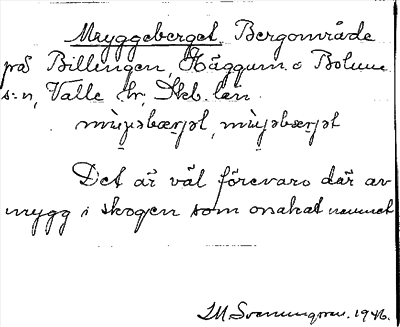 Myggeberget, Bergområde
på Billingen, Häggum o Bolum
s:n, Valle hr, Skb. län.
mỳjəbærjət, mỳjəbærjət
Det är väl förevaro där av
mygg i skogen som orsakat namnet
1946.